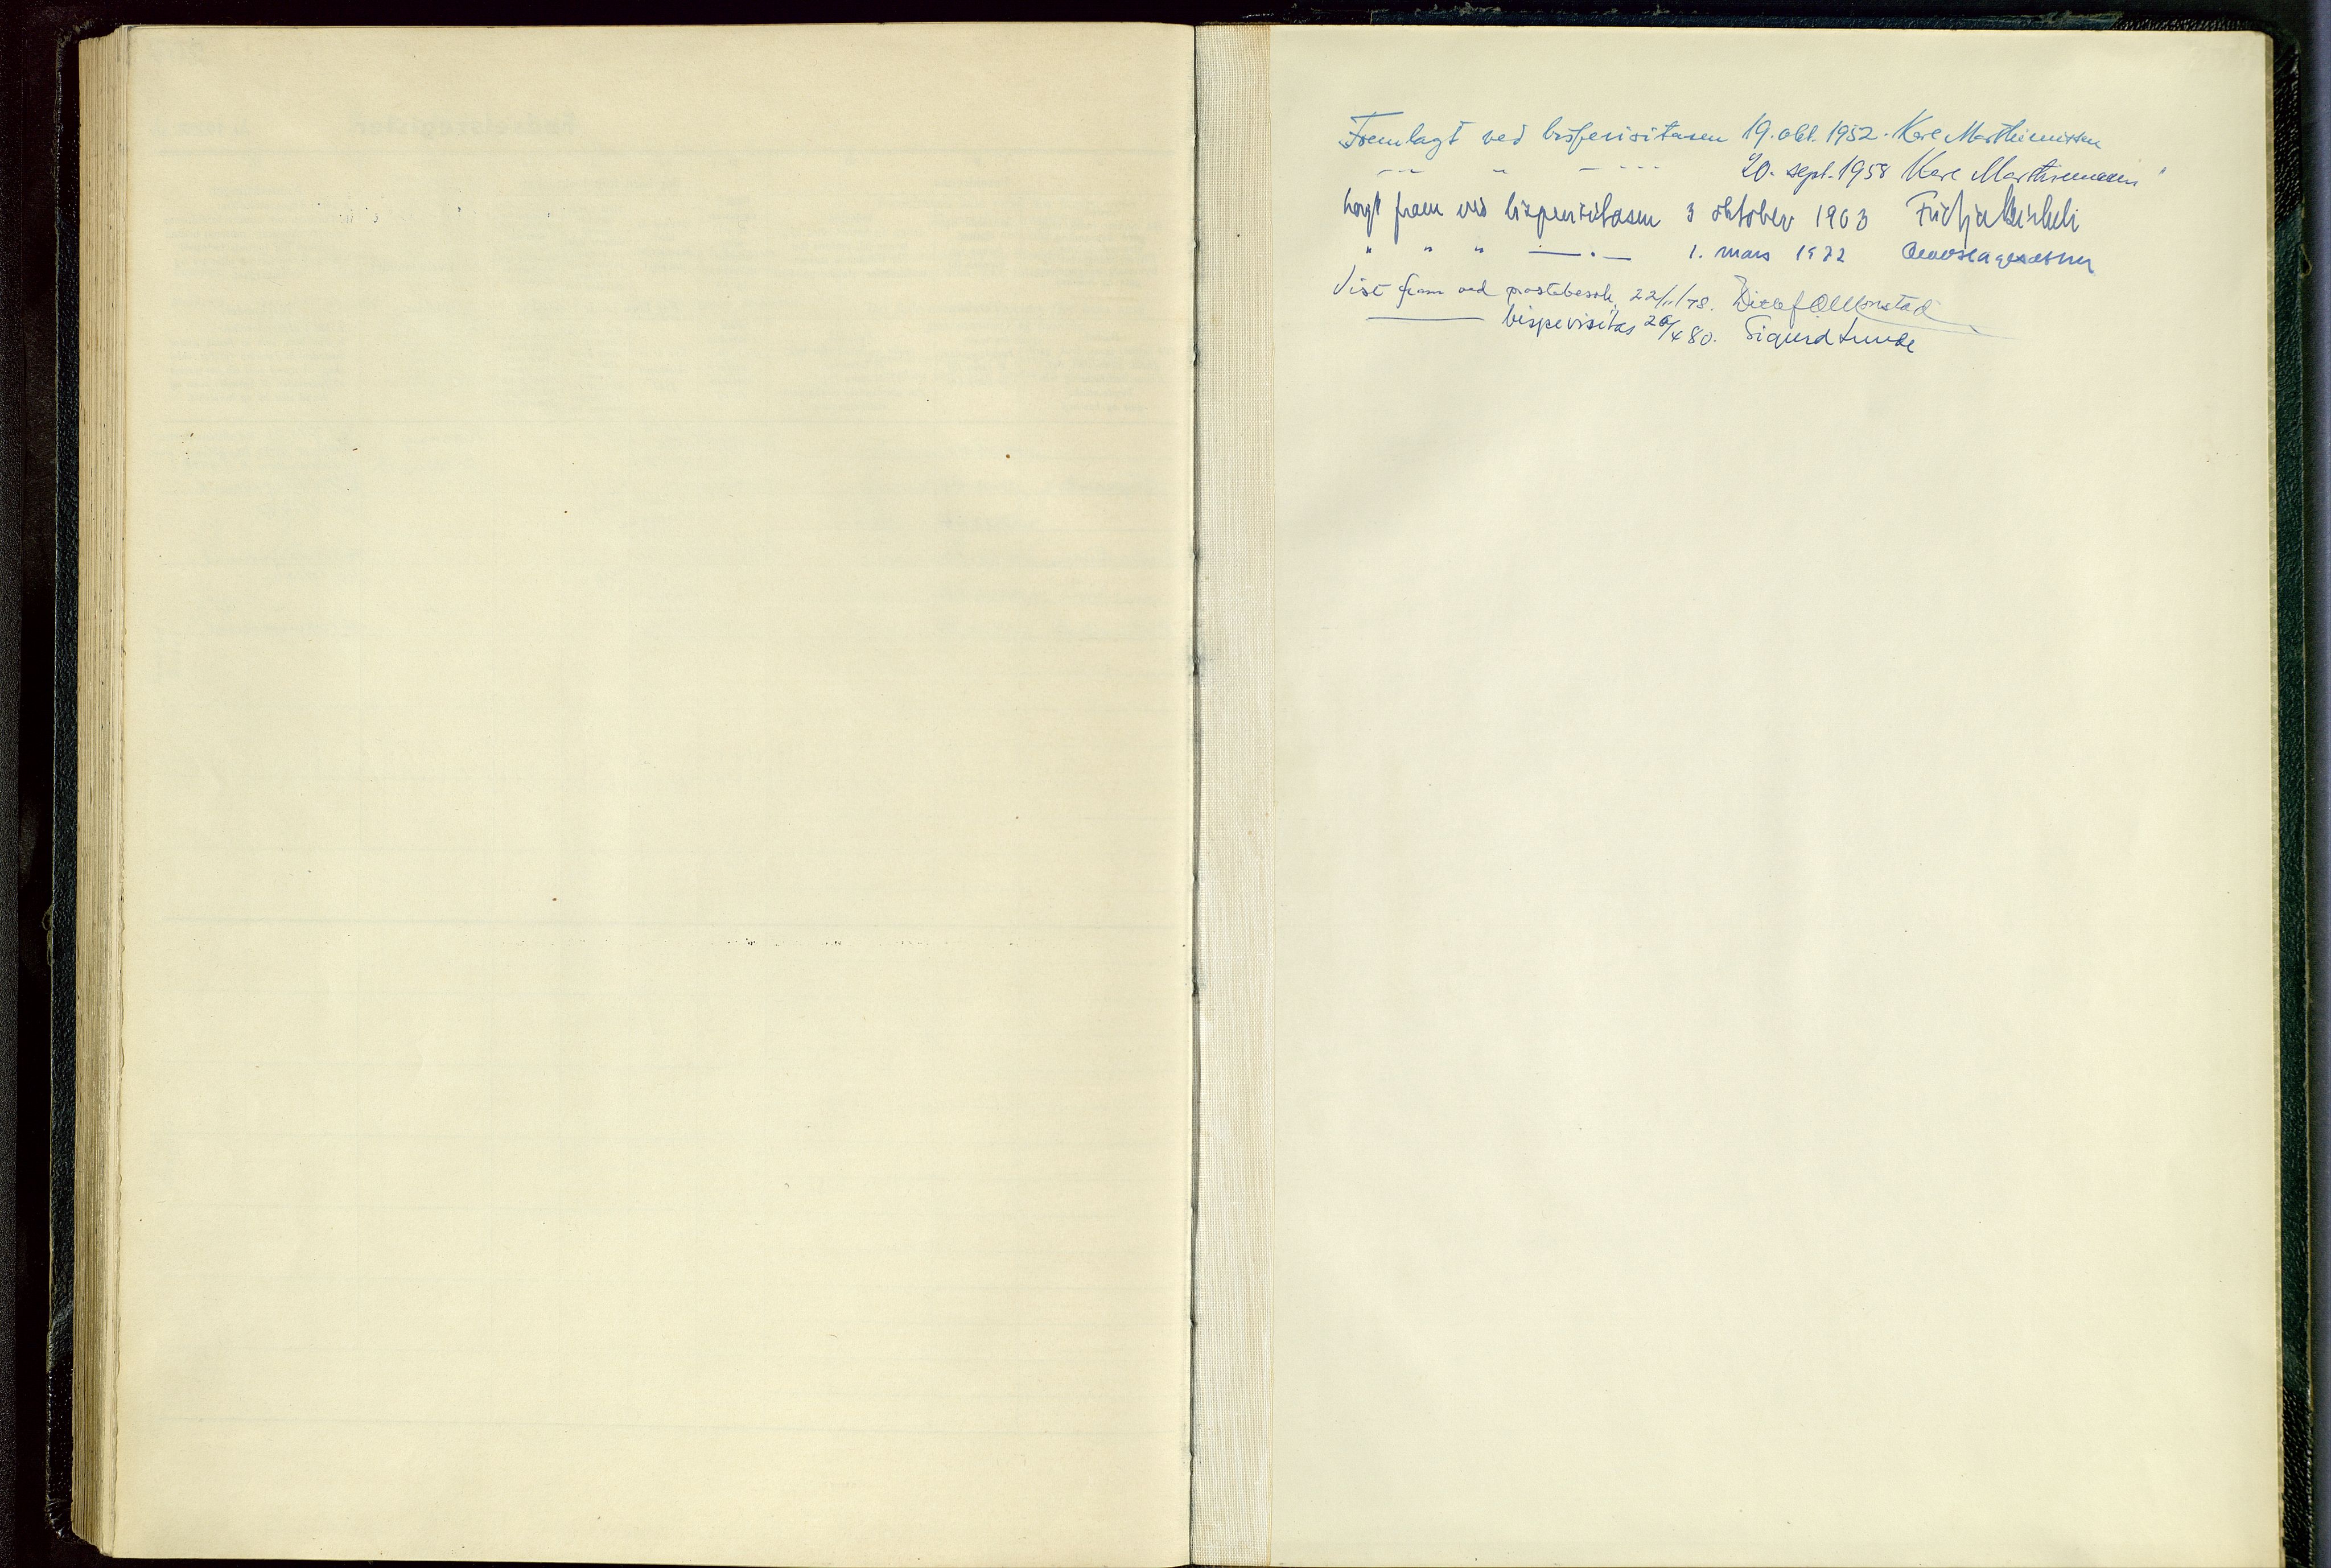 Fremlagt ved bispevisitasen 19. okt. 1952. Karl Marthinussen
--- " - --- 20. sept. 1958 Karl Marthinussen
Lagt fram ved bispevisitasen 3 oktober 1963 Fridtjov Birkeli
" " " —.— 1. mars 1972
Vist fram ved prostebesøk 22/11/78.
——— bispevisitas 20/4 80. Sigurd Lunde